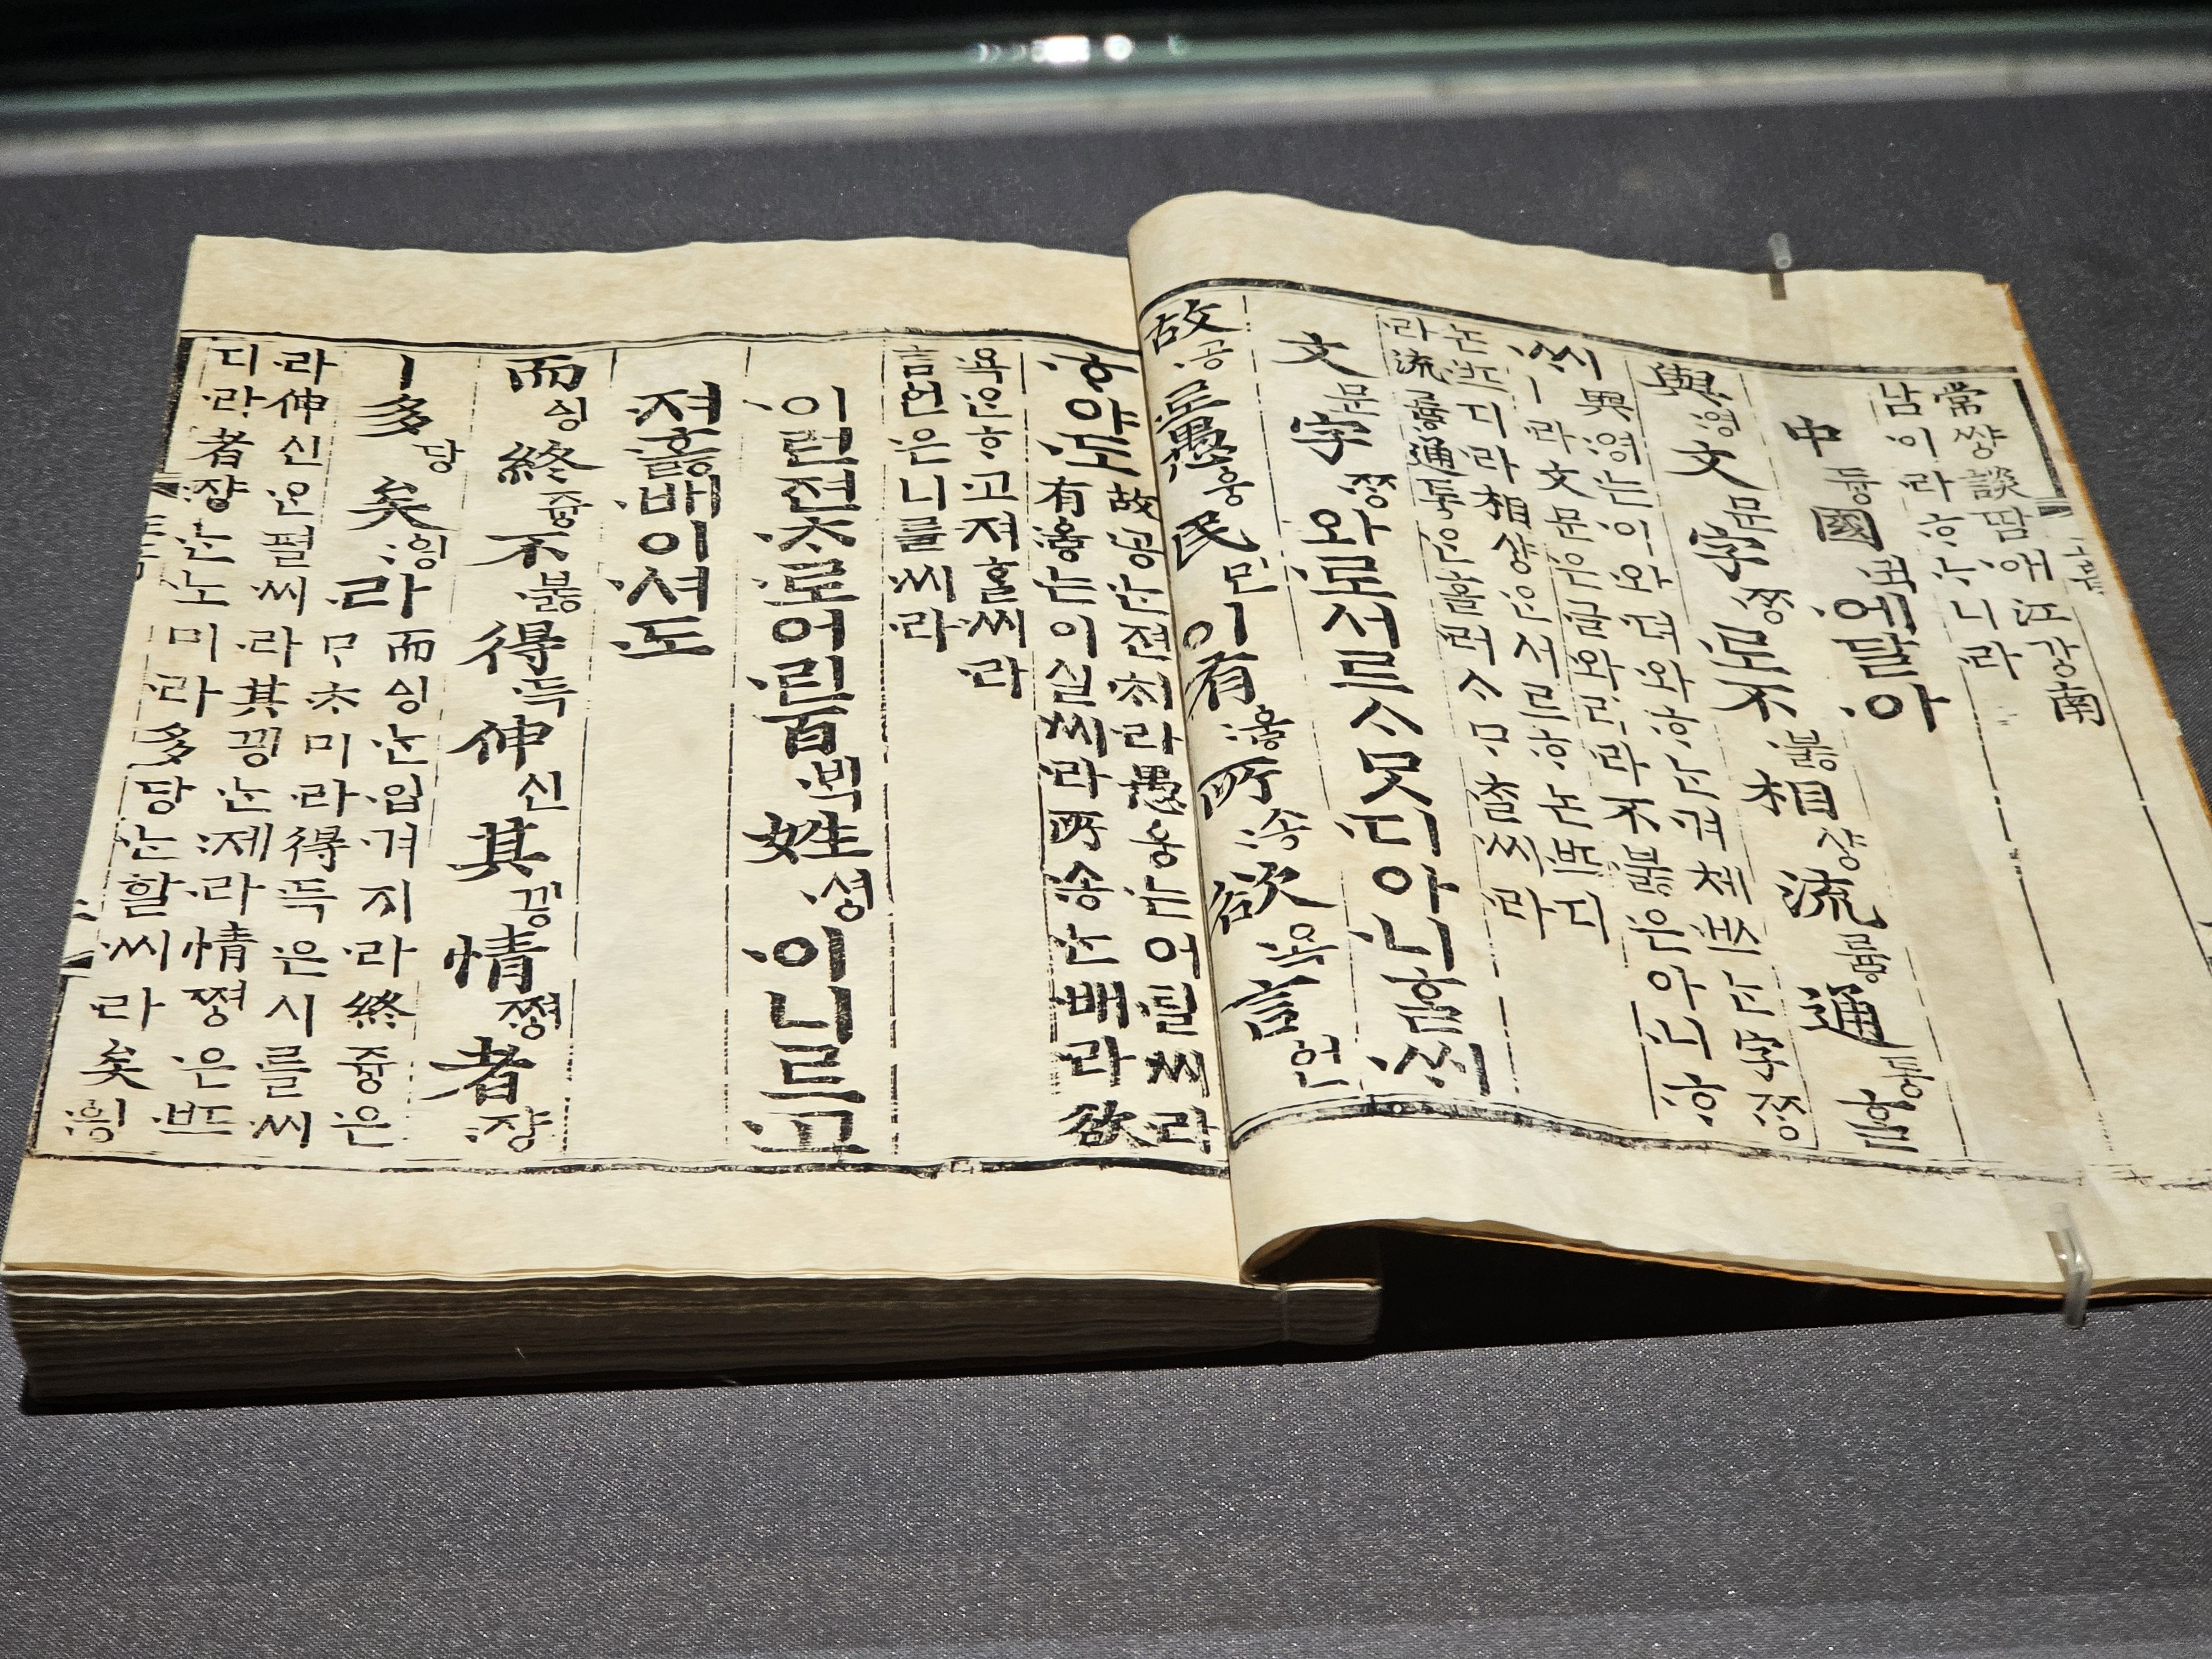 常쌰ᇰ談땀애江가ᇰ南
남이라ᄒᆞᄂᆞ니라
中듀ᇰ國귁에달아
與영文문字ᄍᆞᆼ로不부ᇙ相샤ᇰ流류ᇢ通토ᇰᄒᆞᆯ
ᄊᆡ與영는이와뎌와ᄒᆞᄂᆞᆫ겨체ᄡᅳ는字ᄍᆞᆼ
ㅣ라文문은글와리라不부ᇙ은아니ᄒᆞ
논ᄠᅳ디라相샤ᇰᄋᆞᆫ서르ᄒᆞ논ᄠᅳ디
라流류ᇢ通토ᇰᄋᆞᆫ흘러ᄉᆞᄆᆞᄎᆞᆯ씨라
文문字ᄍᆞᆼ와로서르ᄉᆞᄆᆞᆺ디아니ᄒᆞᆯᄊᆡ
故공로愚ᅌᅮᆼ民민이有우ᇢ所송欲욕言ᅌᅥᆫ
ᄒᆞ야도故공ᄂᆞᆫ젼ᄎᆡ라愚ᅌᅮᆼ는어릴씨라
有우ᇢ는이실씨라所송ᄂᆞᆫ배라欲
욕은ᄒᆞ고져ᄒᆞᆯ씨라
言ᅌᅥᆫ은니를씨라
이런젼ᄎᆞ로어린百ᄇᆡᆨ姓셔ᇰ이니르고
져호ᇙ배이셔도
而ᅀᅵᆼ終쥬ᇰ不부ᇙ得득伸신其끵情쪄ᇰ者쟝
ㅣ多당矣ᅌᅴᆼ라而ᅀᅵᆼᄂᆞᆫ입겨지라終쥬ᇰ은
ᄆᆞᄎᆞ미라得득은시를씨
라伸신은펼씨라其끵ᄂᆞᆫ제라情쪄ᇰ은ᄠᅳ
디라者쟝ᄂᆞᆫ노미라多당ᄂᆞᆫ할씨라矣ᅌᅴᆼ